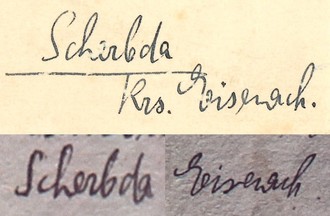 Scherbda
Krs. Eisenach.
Scherbda Eisenach.